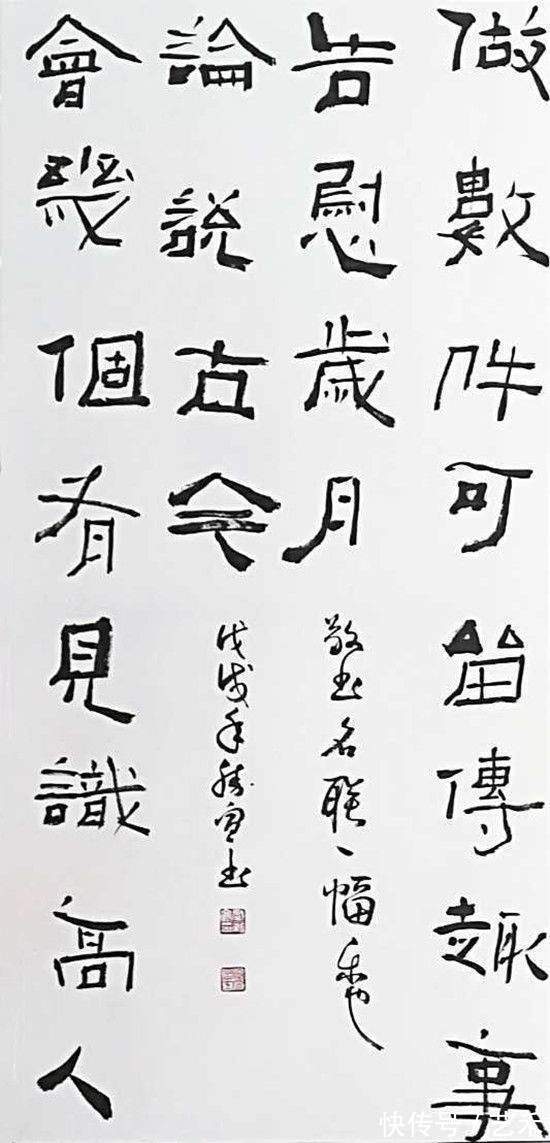 做數件可留傳趣事
告慰歲月
會幾個有見識高人
論説古今
敬书名联一幅
戊戌年
快传号